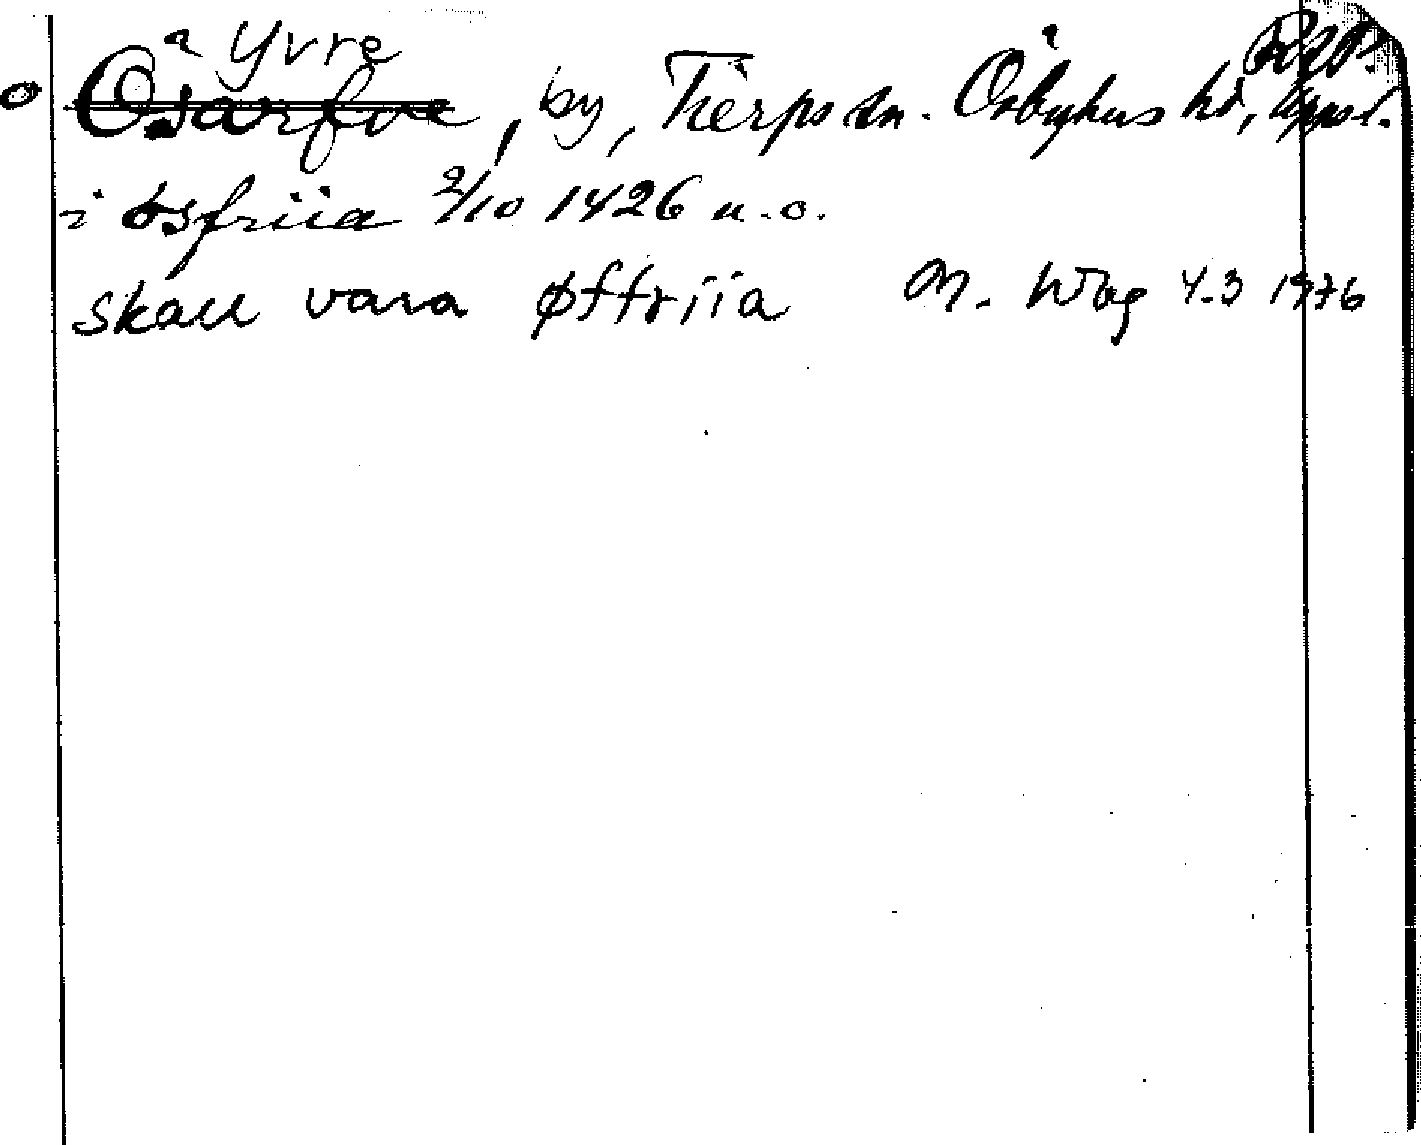 Yvre
Osarfve, by, Tierps sn. Örbyhus hd, Uppsl.
i ösfriia 2/10 1426 u.o.
skall vara øffriia M. Wbg 4.3 1976